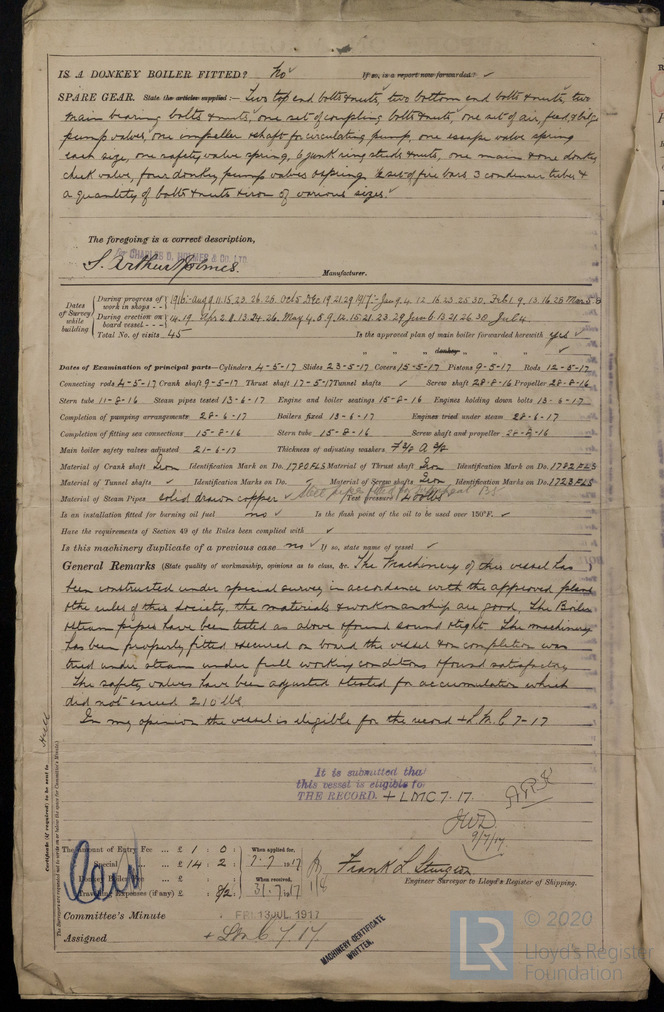 IS A DONKEY BOILER FITTED? No ✓ If so, is a report now forwarded? ✓
SPARE GEAR. State the articles supplied:— Two top end bolts & nuts, two bottom end bolts & nuts, two
main bearing bolts & nuts, one set of coupling bolts & nuts, one set of air, feed & bilge
pump valves, one impeller shaft for circulating pump, one escape valve spring
each size, one safety valve spring, 6 junk ring studs & nuts, one main & one donkey
check valve, four donkey pump valves & spring, ½ set of fire bars 3 condenser tubes &
a quantity of bolts & nuts & iron of various sizes. ✓
The foregoing is a correct description,
for CHARLES D. HOLMES & Co. LTD.
S. Arthur Holmes. Manufacturer.
Dates of Survey while building
During progress of work in shops - - 1916:- Aug 9. 11. 15. 23. 26. 28. Oct 5. Dec 19. 21. 29. 1917:- Jan 9. 4. 12. 16. 23. 25. 30. Feb 1. 9. 13. 16. 28. Mar 5. 8
During erection on board vessel - - - 14. 19. Apr 2. 8. 13. 24. 26. May 4. 5. 9. 12. 15. 21. 23. 29. June 6. 13. 21. 26. 30. Jul 4
Total No. of visits 45 Is the approved plan of main boiler forwarded herewith yes ✓
" " " donkey " " " ✓
Dates of Examination of principal parts—Cylinders 4-5-17 Slides 23-5-17 Covers 15-5-17 Pistons 9-5-17 Rods 12-5-17
Connecting rods 4-5-17 Crank shaft 9-5-17 Thrust shaft 17-5-17 Tunnel shafts ✓ Screw shaft 28-8-16 Propeller 28-8-16
Stern tube 11-8-16 Steam pipes tested 13-6-17 Engine and boiler seatings 15-8-16 Engines holding down bolts 13-6-17
Completion of pumping arrangements 28-6-17 Boilers fixed 13-6-17 Engines tried under steam 28-6-17
Completion of fitting sea connections 15-8-16 Stern tube 15-8-16 Screw shaft and propeller 28-8-16
Main boiler safety valves adjusted 21-6-17 Thickness of adjusting washers F 3/8 A 3/8
Material of Crank shaft Iron Identification Mark on Do. 1780 FLS Material of Thrust shaft Iron Identification Mark on Do. 1782 FLS
Material of Tunnel shafts ✓ Identification Marks on Do. ✓ Material of Screw shafts Iron Identification Marks on Do. 1723 FLS
Material of Steam Pipes solid drawn copper ✓ Test pressure 400 lbs
Is an installation fitted for burning oil fuel no ✓ Is the flash point of the oil to be used over 150°F. ✓
Have the requirements of Section 49 of the Rules been complied with ✓
Is this machinery duplicate of a previous case no ✓ If so, state name of vessel ✓
General Remarks (State quality of workmanship, opinions as to class, &c. The Machinery of this vessel has
been constructed under special survey in accordance with the approved plans
& the rules of this society, the materials & workmanship are good. The Boiler
& steam pipes have been tested as above & found sound & tight. The machinery
has been properly fitted & secured on board the vessel & on completion was
tried under steam under full working conditions & found satisfactory
The safety valves have been adjusted & tested for accumulation which
did not exceed 210 lbs
In my opinion the vessel is eligible for the record + L.M.C 7-17
It is submitted that
this vessel is eligible for
THE RECORD. + LMC 7.17.
9/7/17
Certificate (if required) to be sent to Hull
The amount of Entry Fee ... £ 1 : 0 : When applied for,
Special ... £ 14 : 2 : 7-7-1917
Donkey Boiler Fee ... £ : : When received,
Travelling Expenses (if any) £ : 8/2 : 31.7.1917
Frank L Sturgeon
Engineer Surveyor to Lloyd's Register of Shipping.
Committee's Minute FRI. 13 JUL. 1917
Assigned + LMC 7.17
MACHINERY CERTIFICATE
WRITTEN.
LR © 2020
Lloyd's Register
Foundation